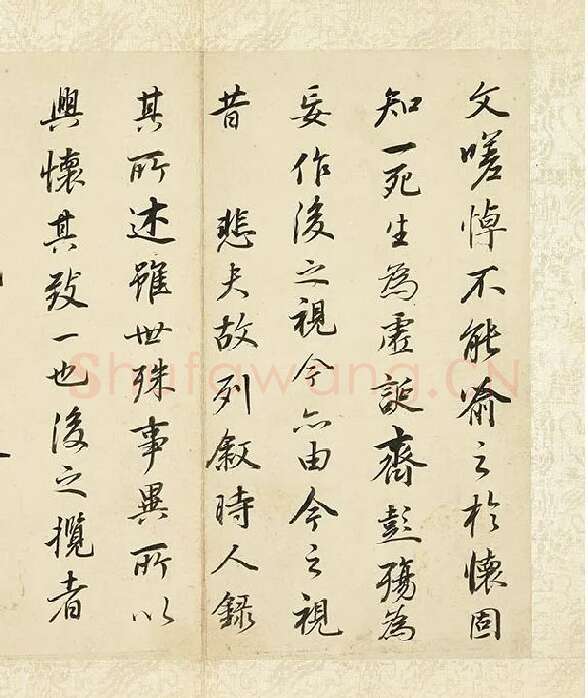 文嗟悼不能喻之於懷固
知一死生為虛誕齊彭殤為
妄作後之視今亦由今之視
昔 悲夫故列敘時人錄
其所述雖世殊事異所以
興懷其致一也後之攬者
Shufawang.CN